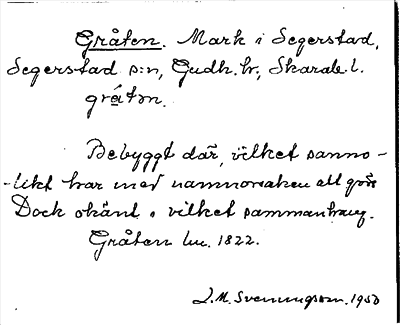 Gråten. Mark i Segerstad,
Segerstad s:n, Gudh. hr., Skarab. l.
gråtən.
Bebyggt där, vilket sanno-
-likt har med namnorsaken att göra
Dock okänt i vilket sammanhang.
Gråten lm. 1822.
J. M. Svenungsson. 1950